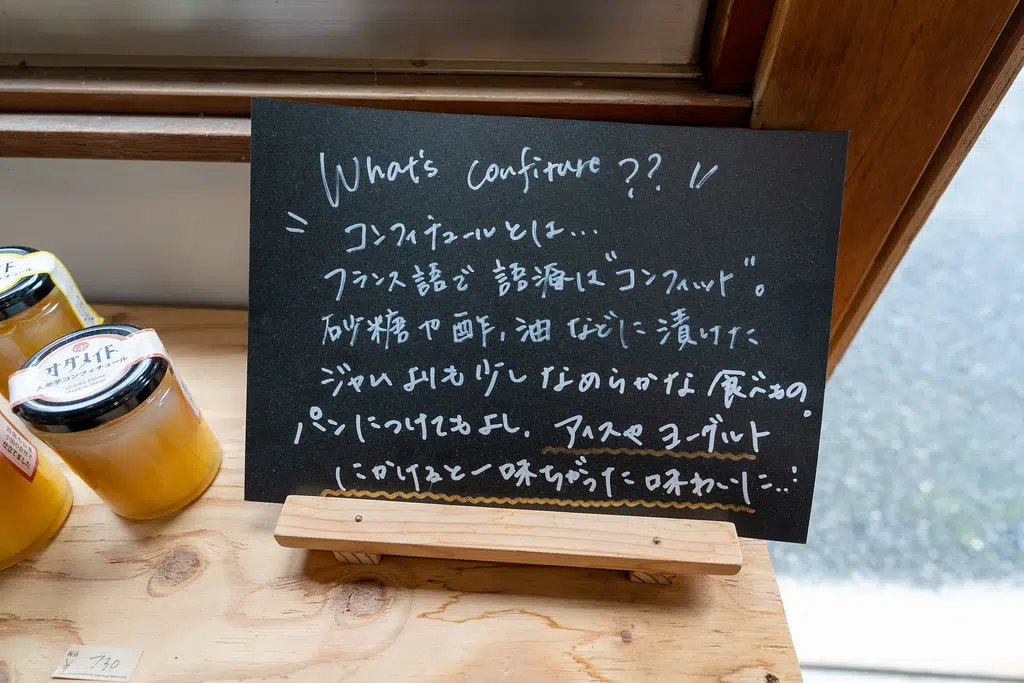 What's confiture ??
コンフィチュールとは...
フランス語で語源は"コンフィット"。
砂糖や酢,油などに漬けた
ジャムよりも少しなめらかな食べもの。
パンにつけてもよし,アイスやヨーグルト
にかけると一味ちがった味わいに...!
オダメイド
人参芋コンフィチュール
仕立てました
税込
¥ 730